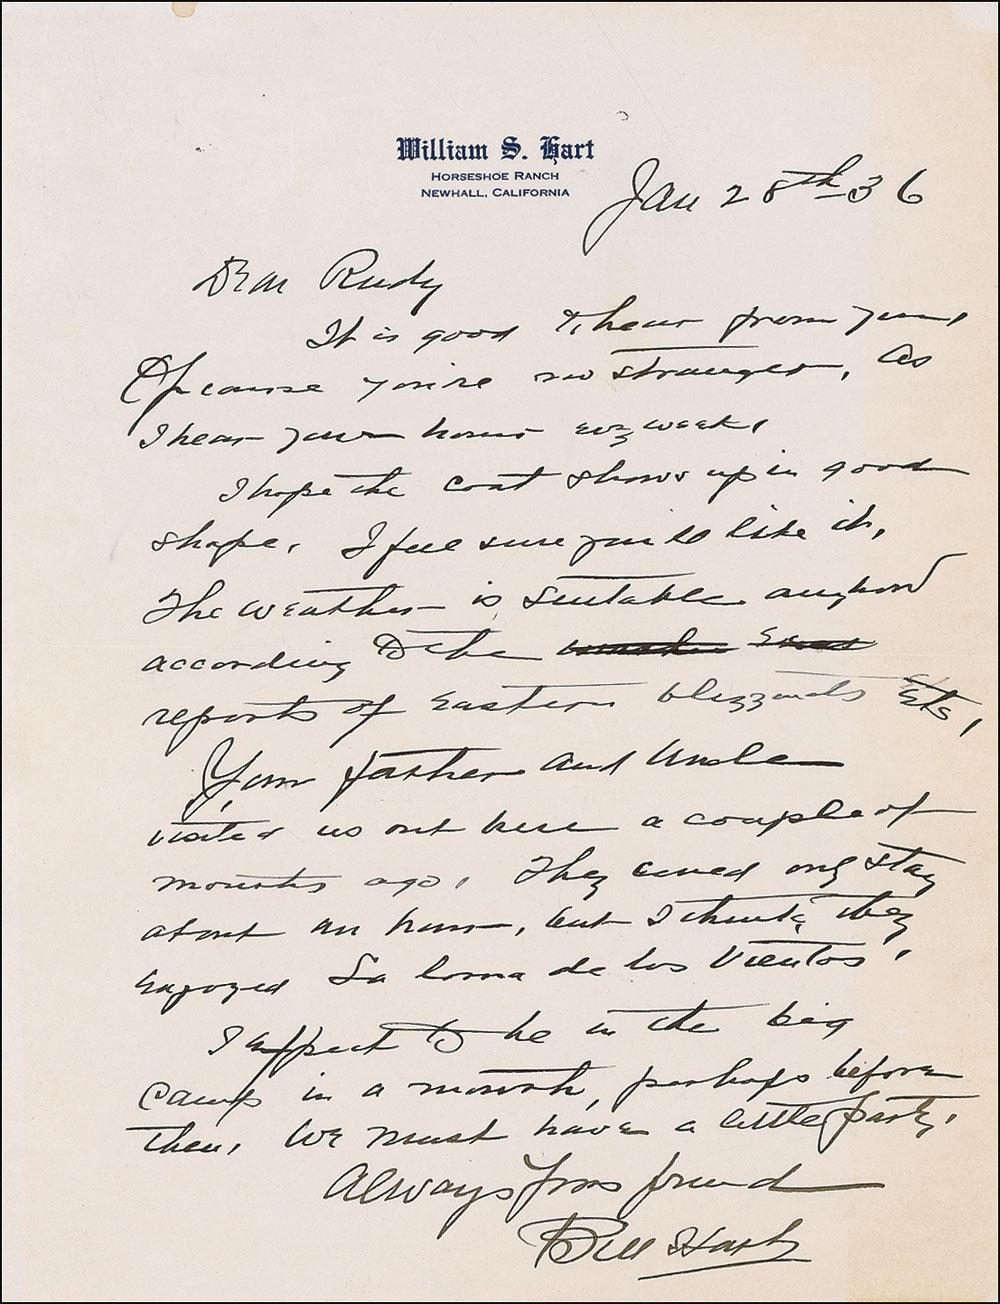 William S. Hart
HORSESHOE RANCH
NEWHALL, CALIFORNIA
Jan 28th 36
Dear Rudy
It is good to hear from you,
Of course you're no stranger, as
I hear your hour every week,
I hope the coat shows up in good
shape. I feel sure you'll like it,
The weather is suitable anyhow
according to the
reports of Eastern blizzards etc,
Your father and Uncle
visited us out here a couple of
months ago, They could only stay
about an hour, but I think they
enjoyed La Loma de los Vientos,
I expect to be in the big
camp in a month, perhaps before
then, We must have a little party,
Always Your friend
Bill Hart